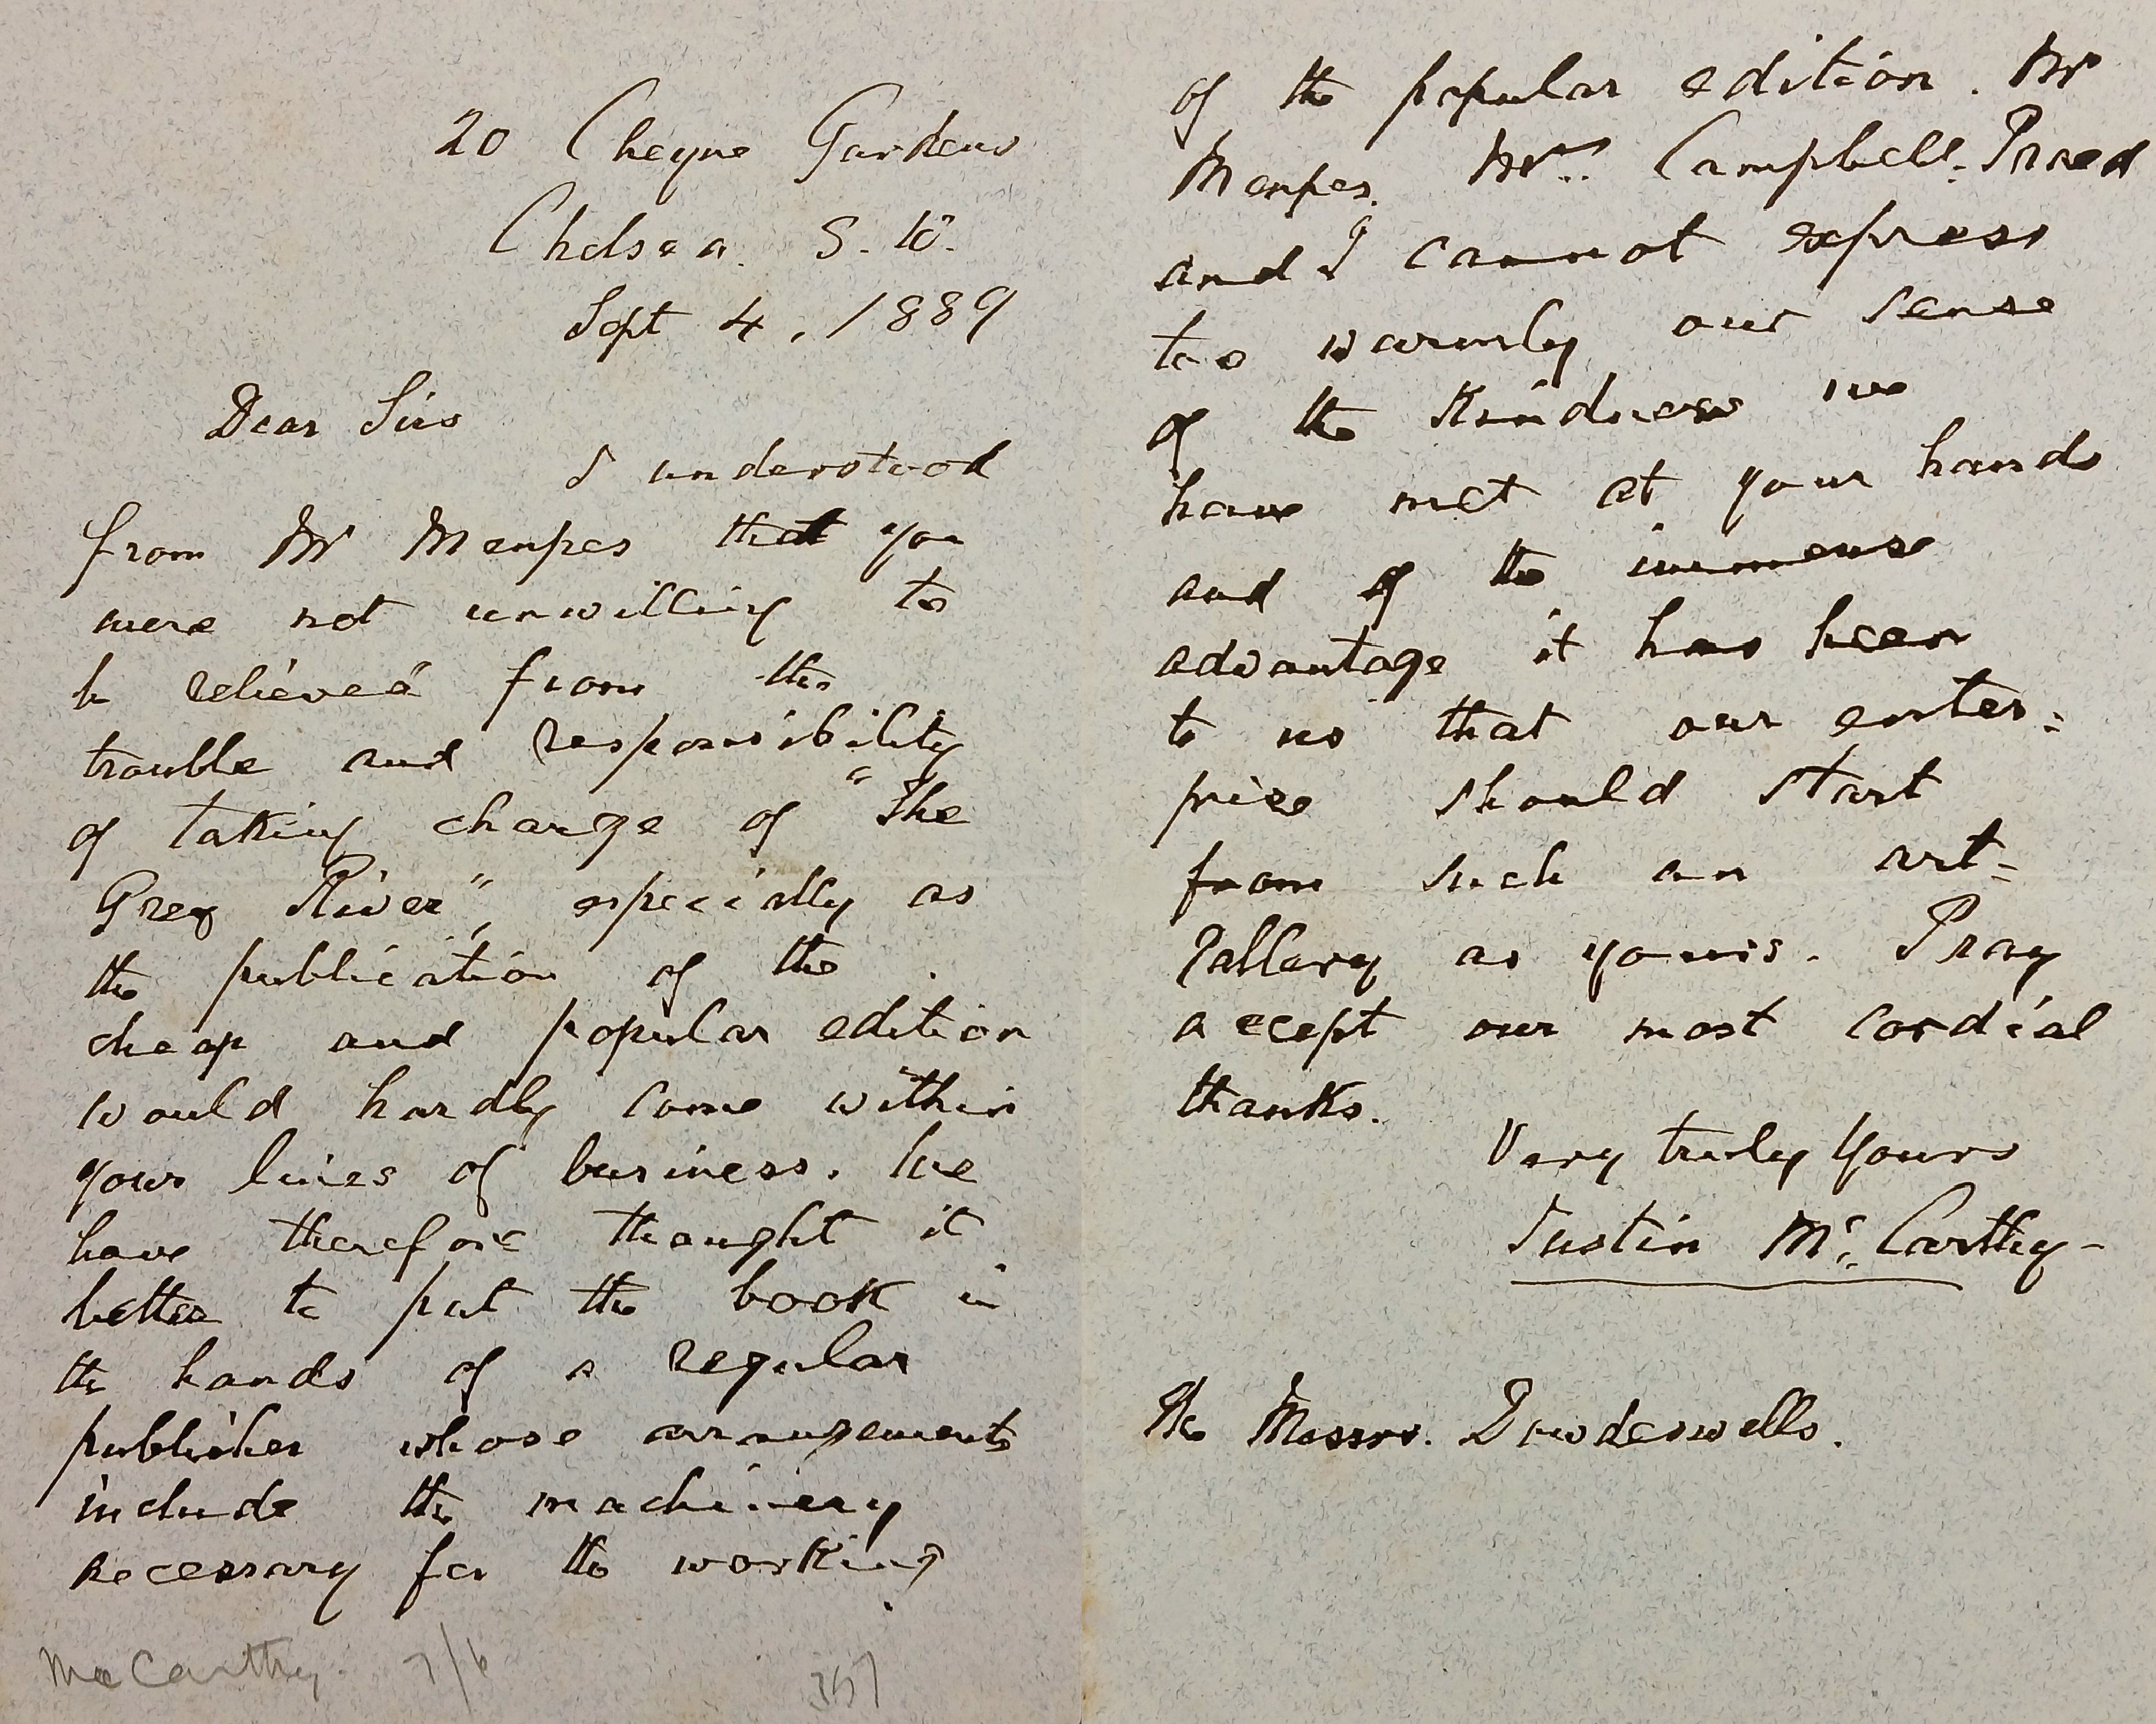 20 Cheyne Gardens
Chelsea. S.W.
Sept 4, 1889
Dear Sirs
I understood
from Mr Menpes that you
were not unwilling to
be relieved from the
trouble and responsibility
of taking charge of "The
Grey River", especially as
the publication of the
cheap and popular edition
would hardly come within
your lines of business. We
have therefore thought it
better to put the book in
the hands of a regular
publisher whose arrangements
include the machinery
necessary for the working
McCarthy. 7/6
357
of the popular edition. Mr
Menpes, Mrs. Campbell-Praed
and I cannot express
too warmly our sense
of the kindness we
have met at your hands
and of the immense
advantage it has been
to us that our enter=
prise should start
from such an art=
gallery as yours. Pray
accept our most cordial
thanks.
Very truly Yours
Justin McCarthy-
The Messrs. Dowdeswells.